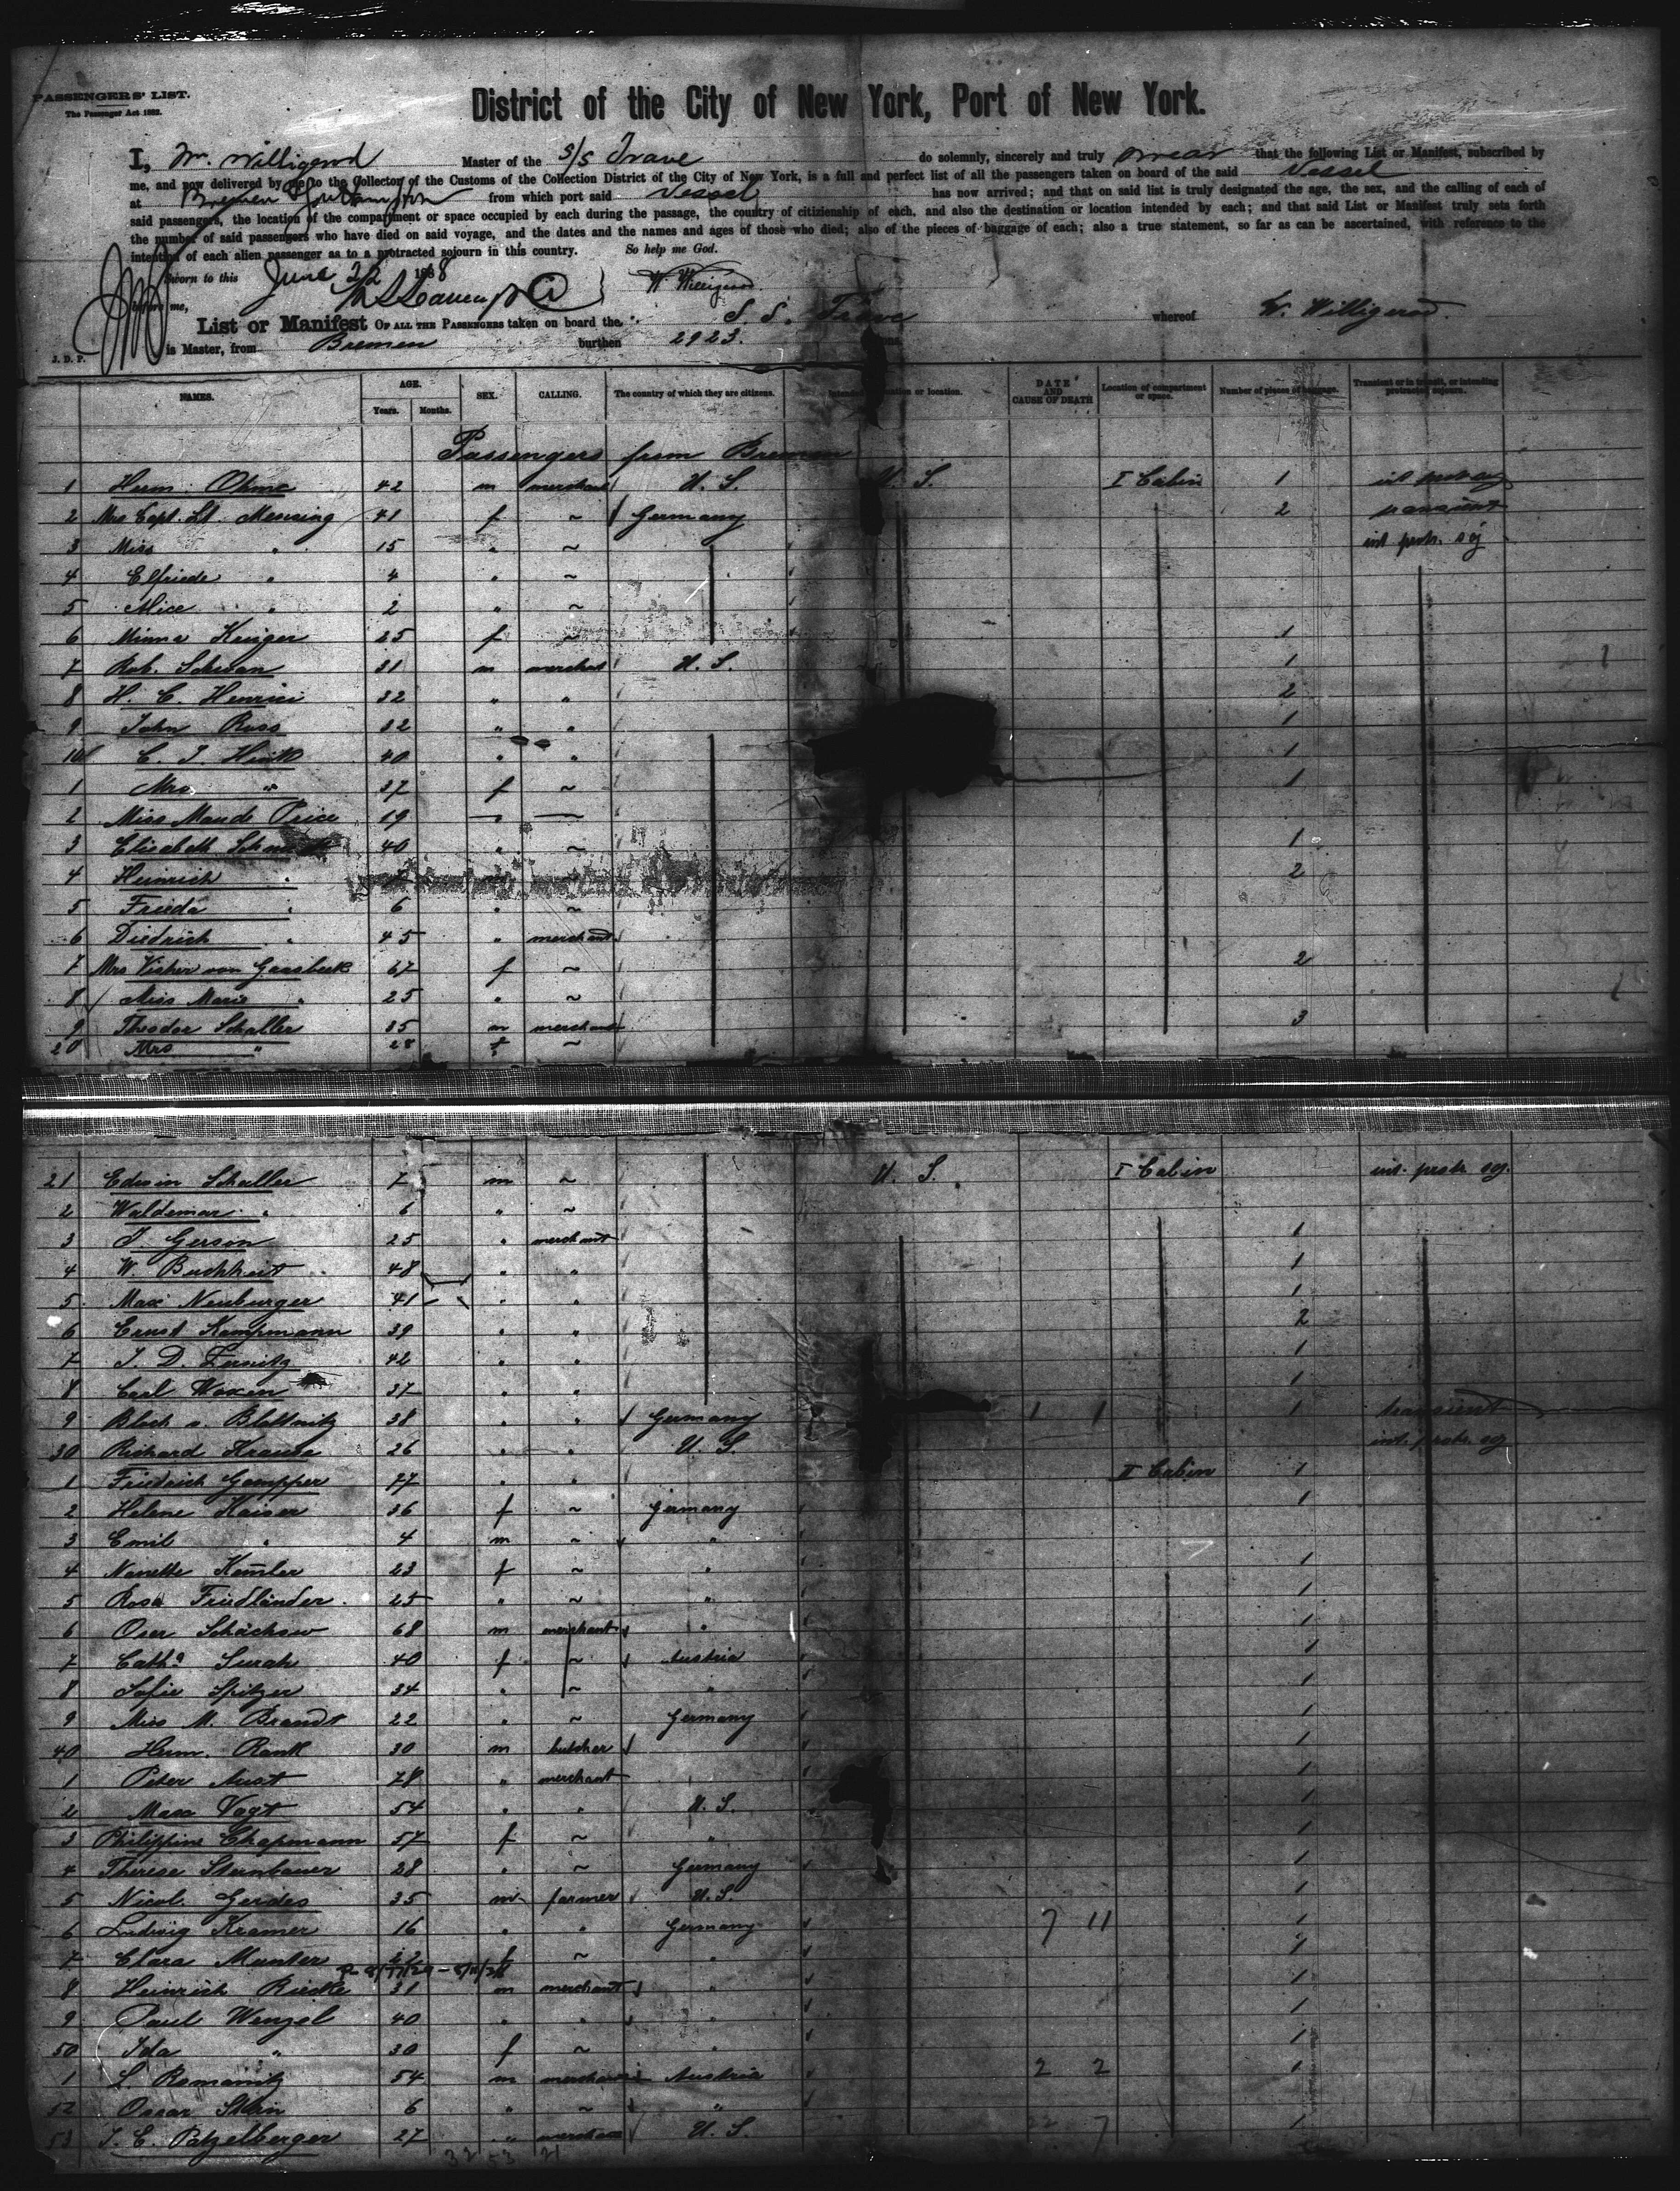 PASSENGERS' LIST.
The Passenger Act 1882.
District of the City of New York, Port of New York.
I, W. Willigerod Master of the S/S Trave do solemnly, sincerely and truly swear that the following List or Manifest, subscribed by
me, and now delivered by me to the Collector of the Customs of the Collection District of the City of New York, is a full and perfect list of all the passengers taken on board of the said Vessel
at Bremen Southampton from which port said Vessel has now arrived; and that on said list is truly designated the age, the sex, and the calling of each of
said passengers, the location of the compartment or space occupied by each during the passage, the country of citizenship of each, and also the destination or location intended by each; and that said List or Manifest truly sets forth
the number of said passengers who have died on said voyage, and the dates and the names and ages of those who died; also of the pieces of baggage of each; also a true statement, so far as can be ascertained, with reference to the
intention of each alien passenger as to a protracted sojourn in this country. So help me God.
Sworn to this June 22 1888
before me, W Willigerod.
List or Manifest OF ALL THE PASSENGERS taken on board the S. S. Trave whereof W. Willigerod.
is Master, from Bremen burthen 2923. tons.
J. D. P.
NAMES. AGE. Years. Months. SEX. CALLING. The country of which they are citizens. Intended destination or location. DATE AND CAUSE OF DEATH Location of compartment or space. Number of pieces of baggage. Transient or in transit, or intending protracted sojourn.
Passengers from Bremen
1 Herm. Ohme 42 m merchant U. S. U. S. I Cabin 1 int protr sj
2 Mrs Capt. Lt. Mensing 41 f ~ Germany 2 transient
3 Miss " 15 " ~ int protr. sj
4 Elfriede " 4 " ~
5 Alice " 2 " ~
6 Minna Kruger 25 f ~ 1
7 Rob. Schwan 31 m merchant U. S. 1
8 H. C. Henrici 32 " " 2
9 John Russ 32 " " 1
10 C. J. 40 " " 1
1 Mrs " 37 f ~ 1
2 Miss Maude Price 19
3 Elisabeth 40 " ~ 1
4 Heinrich " 2
5 Frieda " 6 " ~
6 Diedrich " 45 " merchant
7 Mrs Visher van Gaasbeek 67 f ~ 2
8 Miss Marie " 25 " ~
9 Theodor Schaller 35 m merchant 3
20 Mrs " 28 f ~
21 Edwin Schaller 7 m ~ U. S. I Cabin int. protr sj.
2 Waldemar " 6 " ~
3 J. Gerson 25 " merchant 1
4 W. Buchheit 48 " " 1
5 Max Neuburger 41 " " 1
6 Ernst Kampmann 39 " " 2
7 J. D. Lernitz 42 " " 1
8 Carl Waxen 37 " " 1
9 Bloch v. Blottnitz 38 " " Germany 1 transient
30 Richard Krause 26 " " U. S. int. protr. sj
1 Friedrich Gampper 27 " " II Cabin 1
2 Helene Kaiser 36 f ~ Germany 1
3 Emil " 4 m ~ "
4 Nanette Kemler 23 f ~ " 1
5 Rosa Friedländer 25 " ~ " 1
6 Oser Schächsw 68 m merchant " 1
7 Cath. Surah 40 f ~ Austria 1
8 Sofie Spitzer 34 " ~ " 1
9 Miss M. Brandt 22 " ~ Germany 1
40 Herm. Rank 30 m butcher 1
1 Peter Aust 28 " merchant 1
2 Max Vogt 54 " " U. S. 1
3 Philippine Chapmann 57 f ~ " 1
4 Therese Sternbauer 28 " ~ Germany 1
5 Nicol. Gerdes 35 m farmer U. S. 1
6 Ludwig Kramer 16 " " Germany 7 11 1
7 Clara Munter 22 f ~ " 1
8 Heinrich Riedke 31 m merchant " 1
9 Paul Wenzel 40 " " " 1
50 Ida " 30 f ~ " 1
1 L. Romanitz 54 m merchant Austria 2 2 1
52 Oscar Stein 6 " ~ "
53 J. E. Patzelberger 27 " merchant U. S. 22 7 1
32 53 21